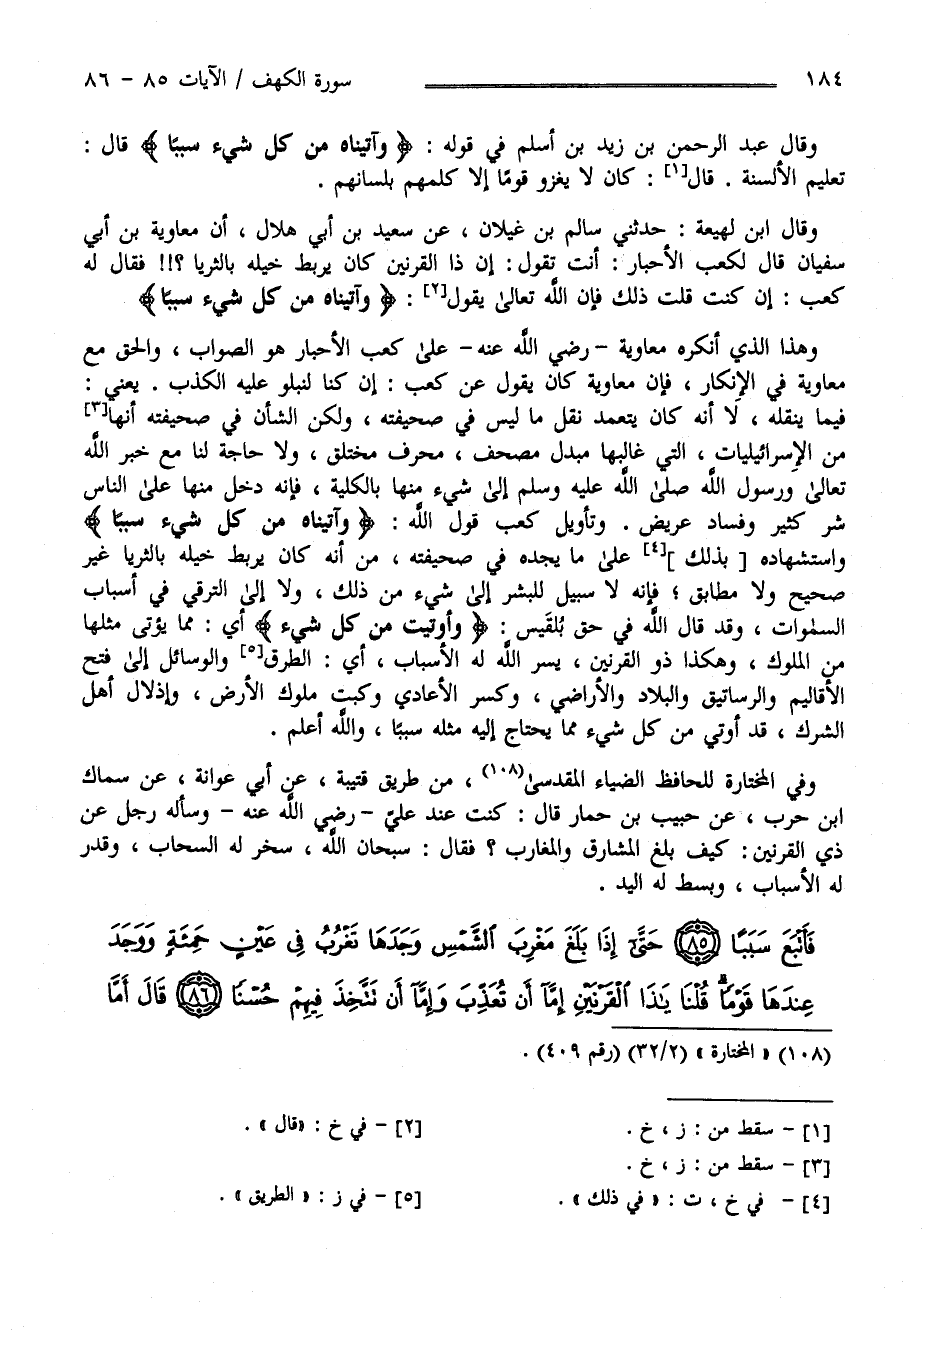 ١٨٤ سورة الكهف / الآيات ٨٥ – ٨٦
وقال عبد الرحمن بن زيد بن أسلم في قوله : ﴿ وآتيناه من كل شيء سببًا ﴾ قال :
تعليم الألسنة . قال[١] : كان لا يغزو قومًا إلا كلمهم بلسانهم .
وقال ابن لهيعة : حدثني سالم بن غيلان ، عن سعيد بن أبي هلال ، أن معاوية بن أبي
سفيان قال لكعب الأحبار : أنت تقول : إن ذا القرنين كان يربط خيله بالثريا ؟!! فقال له
كعب : إن كنت قلت ذلك فإن اللَّه تعالىٰ يقول[٢] : ﴿ وآتيناه من كل شيء سببًا ﴾
وهذا الذي أنكره معاوية – رضي اللَّه عنه – علىٰ كعب الأحبار هو الصواب ، والحق مع
معاوية في الإنكار ، فإن معاوية كان يقول عن كعب : إن كنا لنبلو عليه الكذب . يعني :
فيما ينقله ، لا أنه كان يتعمد نقل ما ليس في صحيفته ، ولكن الشأن في صحيفته أنها[٣]
من الإسرائيليات ، التي غالبها مبدل مصحف ، محرف مختلق ، ولا حاجة لنا مع خبر اللَّه
تعالىٰ ورسول اللَّه صلىٰ اللَّه عليه وسلم إلىٰ شيء منها بالكلية ، فإنه دخل منها علىٰ الناس
شر كثير وفساد عريض . وتأويل كعب قول اللَّه : ﴿ وآتيناه من كل شيء سببًا ﴾
واستشهاده [ بذلك ][٤] علىٰ ما يجده في صحيفته ، من أنه كان يربط خيله بالثريا غير
صحيح ولا مطابق ؛ فإنه لا سبيل للبشر إلىٰ شيء من ذلك ، ولا إلىٰ الترقي في أسباب
السمٰوات ، وقد قال اللَّه في حق بُلقَيس : ﴿ وأوتيت من كل شيء ﴾ أي : مما يؤتى مثلها
من الملوك ، وهكذا ذو القرنين ، يسر اللَّه له الأسباب ، أي : الطرق[٥] والوسائل إلىٰ فتح
الأقاليم والرساتيق والبلاد والأراضي ، وكسر الأعادي وكبت ملوك الأرض ، وإذلال أهل
الشرك ، قد أوتي من كل شيء مما يحتاج إليه مثله سببًا ، واللَّه أعلم .
وفي المختارة للحافظ الضياء المقدسىٰ(١٠٨) ، من طريق قتيبة ، عن أبي عوانة ، عن سماك
ابن حرب ، عن حبيب بن حمار قال : كنت عند عليّ – رضي اللَّه عنه – وسأله رجل عن
ذي القرنين : كيف بلغ المشارق والمغارب ؟ فقال : سبحان اللَّه ، سخر له السحاب ، وقدر
له الأسباب ، وبسط له اليد .
فَأَتْبَعَ سَبَبًا ﴿٨٥﴾ حَتَّىٰٓ إِذَا بَلَغَ مَغْرِبَ ٱلشَّمْسِ وَجَدَهَا تَغْرُبُ فِى عَيْنٍ حَمِئَةٍ وَوَجَدَ
عِندَهَا قَوْمًا ۗ قُلْنَا يَٰذَا ٱلْقَرْنَيْنِ إِمَّآ أَن تُعَذِّبَ وَإِمَّآ أَن نَتَّخِذَ فِيهِمْ حُسْنًا ﴿٨٦﴾ قَالَ أَمَّا
(١٠٨) « المختارة » (٣٢/٢) (رقم ٤٠٩) .
[١] – سقط من : ز ، خ . [٢] – في خ : «قال » .
[٣] – سقط من : ز ، خ .
[٤] – في خ ، ت : « في ذلك » . [٥] – في ز : « الطريق » .